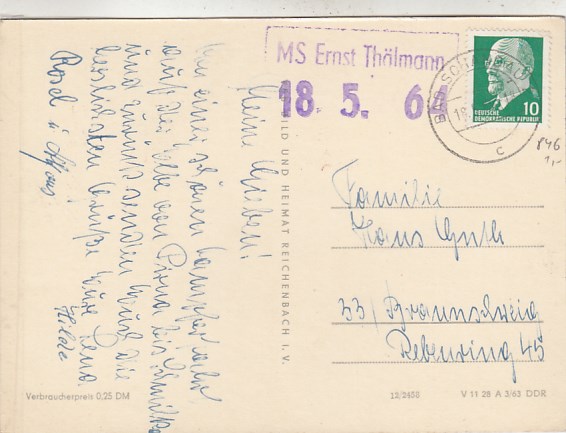 MS Ernst Thälmann
18. 5. 64
10
DEUTSCHE
DEMOKRATISCHE REPUBLIK
c
P46
1,-
Meine Lieben!
Von einer schönen Dampferfahrt
auf der Elbe von Pirna bis Schmilka
und zurück senden Euch die
herzlichsten Grüße Eure Lena
Hilde
Rosel u. Alfons
BILD UND HEIMAT REICHENBACH I. V.
Familie
Hans Guth
33 / Braunschweig
Rebenring 45
Verbraucherpreis 0,25 DM
12/2458
V 11 28 A 3/63 DDR